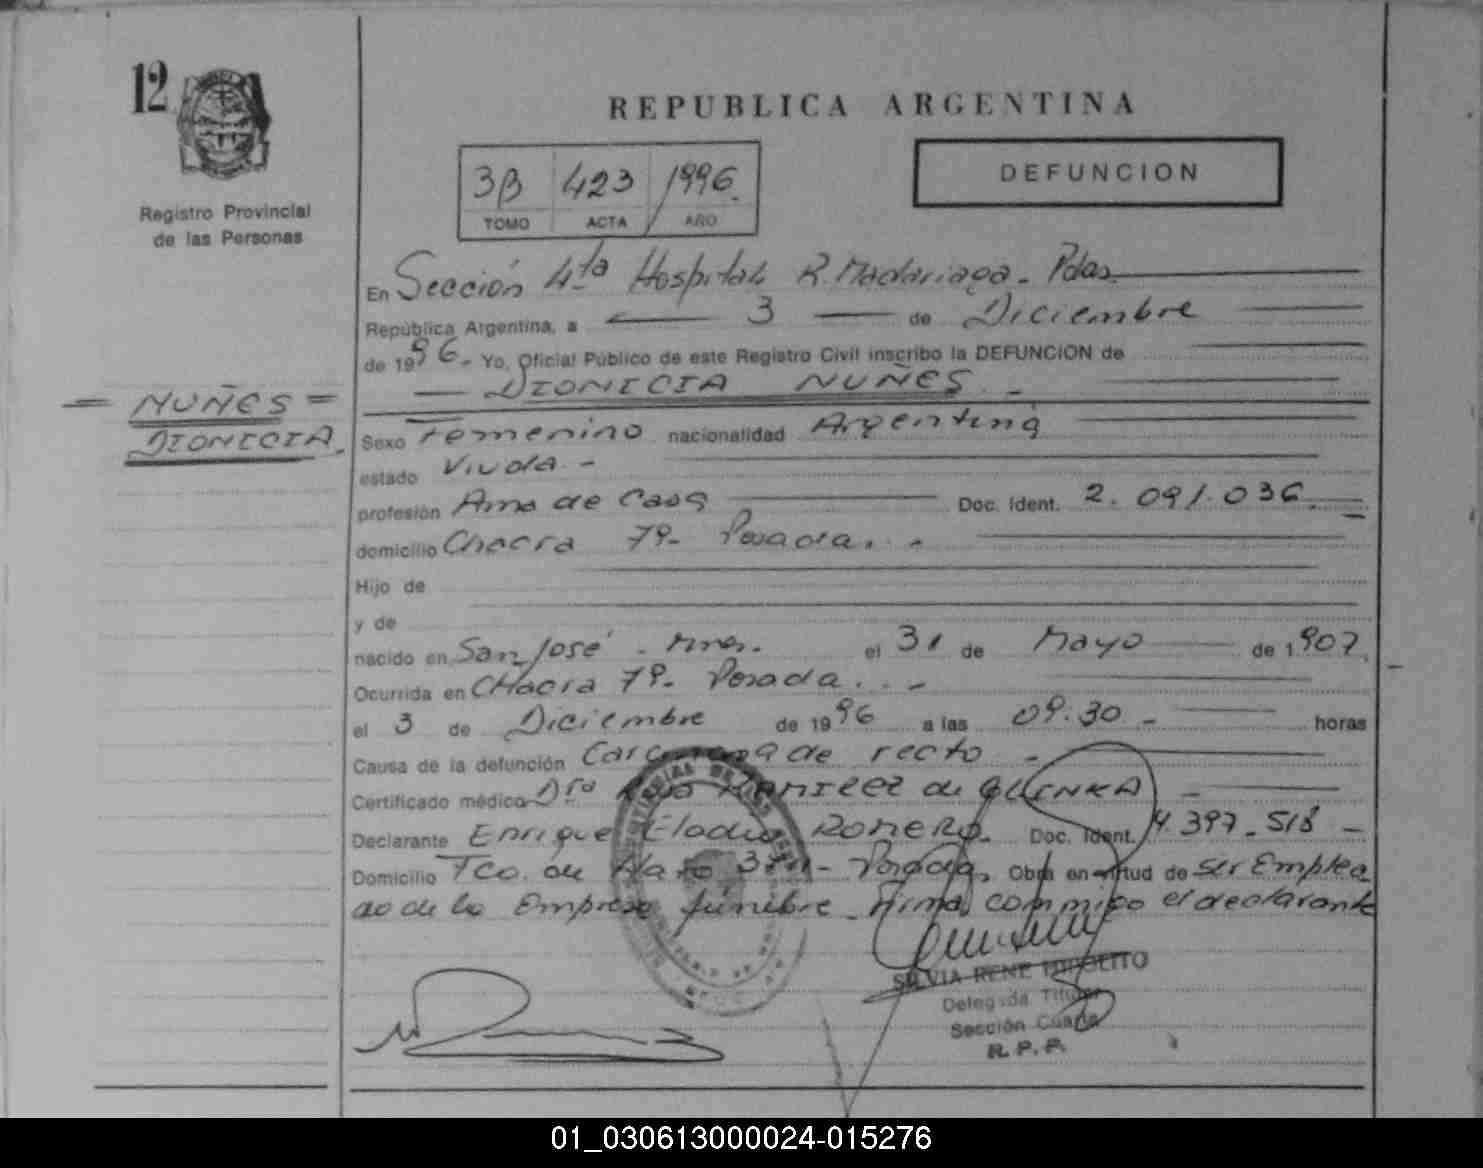 12
REPUBLICA ARGENTINA
Registro Provincial
de las Personas
3B 423 1996.
TOMO ACTA AÑO
DEFUNCION
En Sección 4ta Hospital R. Madariaga - Pdas.
República Argentina, a 3 de Diciembre
de 1996.- Yo, Oficial Público de este Registro Civil inscribo la DEFUNCION de
— DIONICIA NUÑES. -
= NUÑES =
DIONICIA.
Sexo Femenino nacionalidad Argentina
estado Viuda. -
profesión Ama de Casa Doc. Ident. 2.091.036
domicilio Chacra 79- Posadas. -
Hijo de
y de
nacido en San José - Mnes. el 31 de Mayo de 1.907.
Ocurrida en CHacra 79- Posadas. -
el 3 de Diciembre de 1996 a las 09.30 - horas
Causa de la defunción Carcinoma de recto -
Certificado médico Dra RAMIREZ de GLINKA -
Declarante Enrique Eladio ROMERO. Doc. Ident. 397-518 -
Domicilio Tco. de Haro - Posadas, Obra en virtud de ser Emplea
do de la Empresa fúnebre - Firma conmigo el declarante
SILVIA RENE HIPOLITO
Delegada Titular
Sección Cuarta
R. P. P.
01_030613000024-015276